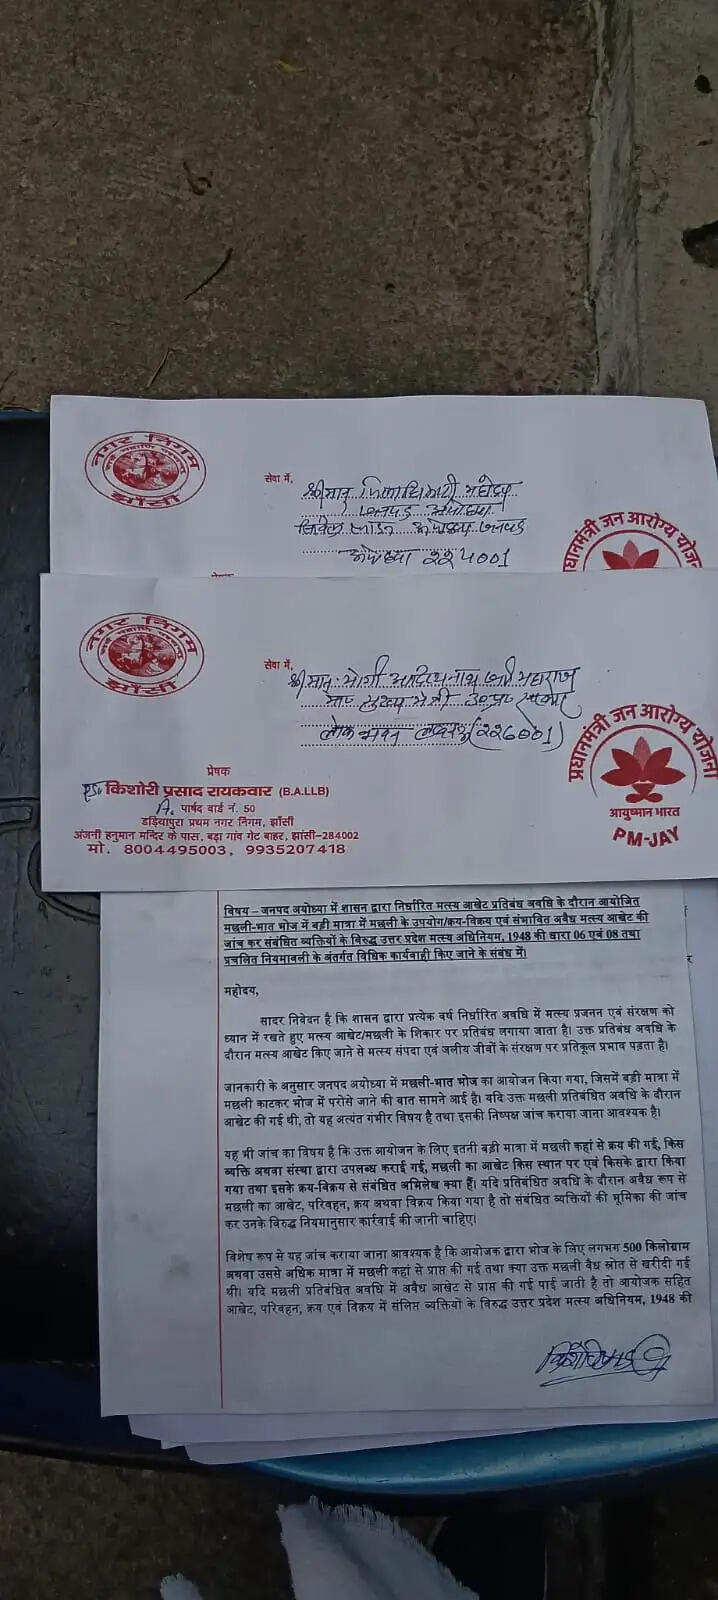 नगर निगम
झाँसी
सेवा में,
श्रीमान् जिलाधिकारी महोदय
जनपद अयोध्या
सिविल लाइन अयोध्या जनपद
अयोध्या २२४००१
प्रधानमंत्री जन आरोग्य योजना
नगर निगम
झाँसी
सेवा में,
श्रीमान्: योगी आदित्यनाथ जी महाराज
मा० मुख्य मंत्री उ०प्र० सरकार
लोक भवन लखनऊ (२२६००१)
प्रधानमंत्री जन आरोग्य योजना
आयुष्मान भारत
PM-JAY
प्रेषक
किशोरी प्रसाद रायकवार (B.A.LLB)
पार्षद वार्ड नं. 50
डड़ियापुरा प्रथम नगर निगम, झाँसी
अंजनी हनुमान मन्दिर के पास, बड़ा गांव गेट बाहर, झांसी-284002
मो. 8004495003, 9935207418
विषय – जनपद अयोध्या में शासन द्वारा निर्धारित मत्स्य आखेट प्रतिबंध अवधि के दौरान आयोजित
मछली-भात भोज में बड़ी मात्रा में मछली के उपयोग/क्रय-विक्रय एवं संभावित अवैध मत्स्य आखेट की
जांच कर संबंधित व्यक्तियों के विरुद्ध उत्तर प्रदेश मत्स्य अधिनियम, 1948 की धारा 06 एवं 08 तथा
प्रचलित नियमावली के अंतर्गत विधिक कार्यवाही किए जाने के संबंध में।
महोदय,
सादर निवेदन है कि शासन द्वारा प्रत्येक वर्ष निर्धारित अवधि में मत्स्य प्रजनन एवं संरक्षण को
ध्यान में रखते हुए मत्स्य आखेट/मछली के शिकार पर प्रतिबंध लगाया जाता है। उक्त प्रतिबंध अवधि के
दौरान मत्स्य आखेट किए जाने से मत्स्य संपदा एवं जलीय जीवों के संरक्षण पर प्रतिकूल प्रभाव पड़ता है।
जानकारी के अनुसार जनपद अयोध्या में मछली-भात भोज का आयोजन किया गया, जिसमें बड़ी मात्रा में
मछली काटकर भोज में परोसे जाने की बात सामने आई है। यदि उक्त मछली प्रतिबंधित अवधि के दौरान
आखेट की गई थी, तो यह अत्यंत गंभीर विषय है तथा इसकी निष्पक्ष जांच कराया जाना आवश्यक है।
यह भी जांच का विषय है कि उक्त आयोजन के लिए इतनी बड़ी मात्रा में मछली कहां से क्रय की गई, किस
व्यक्ति अथवा संस्था द्वारा उपलब्ध कराई गई, मछली का आखेट किस स्थान पर एवं किसके द्वारा किया
गया तथा इसके क्रय-विक्रय से संबंधित अभिलेख क्या हैं। यदि प्रतिबंधित अवधि के दौरान अवैध रूप से
मछली का आखेट, परिवहन, क्रय अथवा विक्रय किया गया है तो संबंधित व्यक्तियों की भूमिका की जांच
कर उनके विरुद्ध नियमानुसार कार्रवाई की जानी चाहिए।
विशेष रूप से यह जांच कराया जाना आवश्यक है कि आयोजक द्वारा भोज के लिए लगभग 500 किलोग्राम
अथवा उससे अधिक मात्रा में मछली कहां से प्राप्त की गई तथा क्या उक्त मछली वैध स्रोत से खरीदी गई
थी। यदि मछली प्रतिबंधित अवधि में अवैध आखेट से प्राप्त की गई पाई जाती है तो आयोजक सहित
आखेट, परिवहन, क्रय एवं विक्रय में संलिप्त व्यक्तियों के विरुद्ध उत्तर प्रदेश मत्स्य अधिनियम, 1948 की